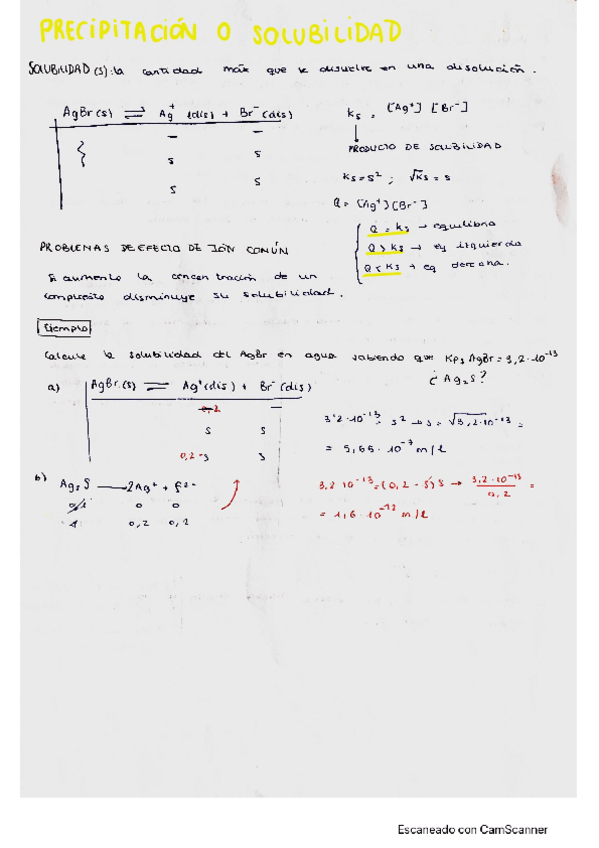 PRECIPITACIÓN O SOLUBILIDAD
SOLUBILIDAD (s): la cantidad máx que se disuelve en una disolución.
AgBr(s) ⇌ Ag⁺ (dis) + Br⁻ (dis)
— —
s s
s s
Ks = [Ag⁺] [Br⁻]
PRODUCTO DE SOLUBILIDAD
Ks = s² ; √Ks = s
Q = [Ag⁺] [Br⁻]
Q = Ks → equilibrio
Q > Ks → eq izquierda
Q < Ks → eq derecha.
PROBLEMAS DE EFECTO DE IÓN COMÚN
Si aumento la concentración de un
compuesto disminuye su solubilidad.
Ejemplo
Calcule la solubilidad del AgBr en agua sabiendo que Kps AgBr = 3,2·10⁻¹³
¿Ag₂S?
a) AgBr(s) ⇌ Ag⁺(dis) + Br⁻(dis)
0,2 —
s s
0,2-s s
3'2·10⁻¹³ = s² → s = √3,2·10⁻¹³ =
= 5,65·10⁻⁷ m/l
b) Ag₂S → 2Ag⁺ + S²⁻
0 0
0,2 0,2
3,2·10⁻¹³ = (0,2 - s)s → 3,2·10⁻¹³ / 0,2 =
= 1,6·10⁻¹² m/l
Escaneado con CamScanner